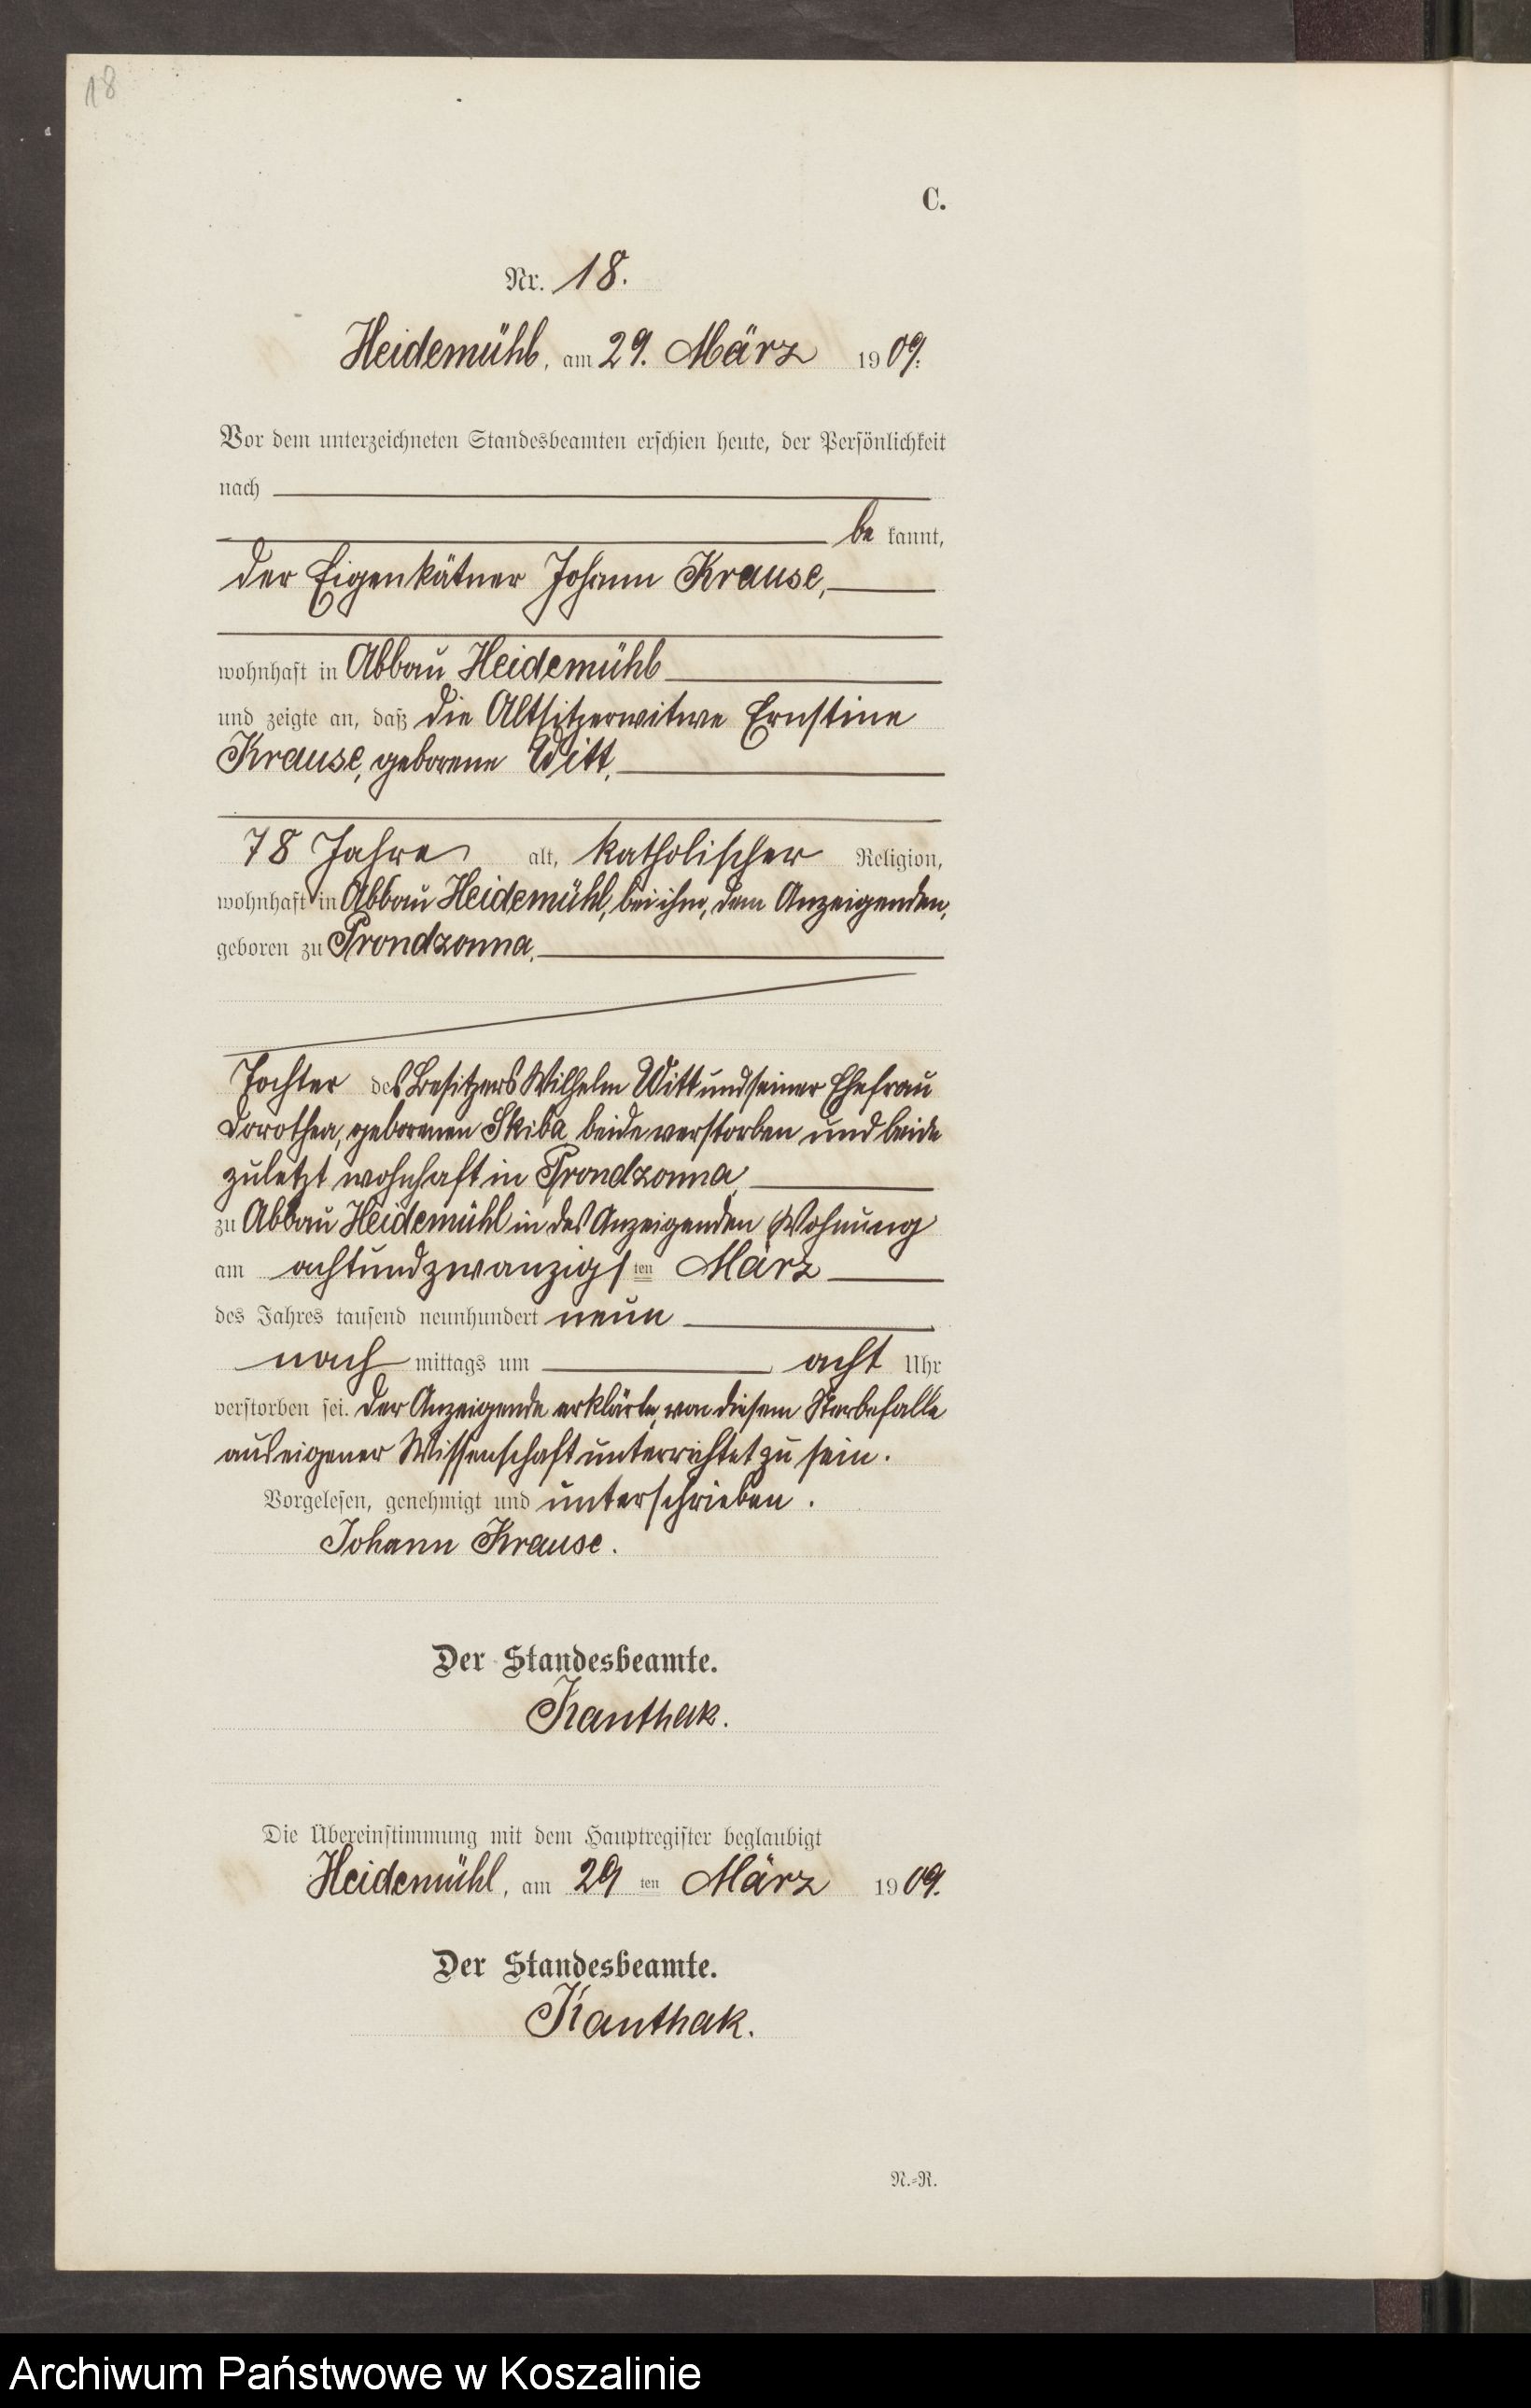 18
C.
Nr. 18.
Heidemühl, am 29. März 1909.
Vor dem unterzeichneten Standesbeamten erschien heute, der Persönlichkeit
nach
be kannt,
der Eigenkätner Johann Krause,
wohnhaft in Abbau Heidemühl
und zeigte an, daß die Altsitzerwitwe Ernstine
Krause, geborene Witt,
78 Jahre alt, katholischer Religion,
wohnhaft in Abbau Heidemühl, bei ihm, dem Anzeigenden,
geboren zu Prondzonna,
Tochter des Besitzers Wilhelm Witt und seiner Ehefrau
Dorothea, geborenen Skiba, beide verstorben und beide
zuletzt wohnhaft in Prondzonna,
zu Abbau Heidemühl in des Anzeigenden Wohnung
am achtundzwanzigsten März
des Jahres tausend neunhundert neun
nach mittags um acht Uhr
verstorben sei. Der Anzeigende erklärte, von diesem Sterbefalle
aus eigener Wissenschaft unterrichtet zu sein.
Vorgelesen, genehmigt und unterschrieben.
Johann Krause.
Der Standesbeamte.
Kanthak.
Die Übereinstimmung mit dem Hauptregister beglaubigt
Heidemühl, am 29 ten März 1909.
Der Standesbeamte.
Kanthak.
N.=R.
Archiwum Państwowe w Koszalinie